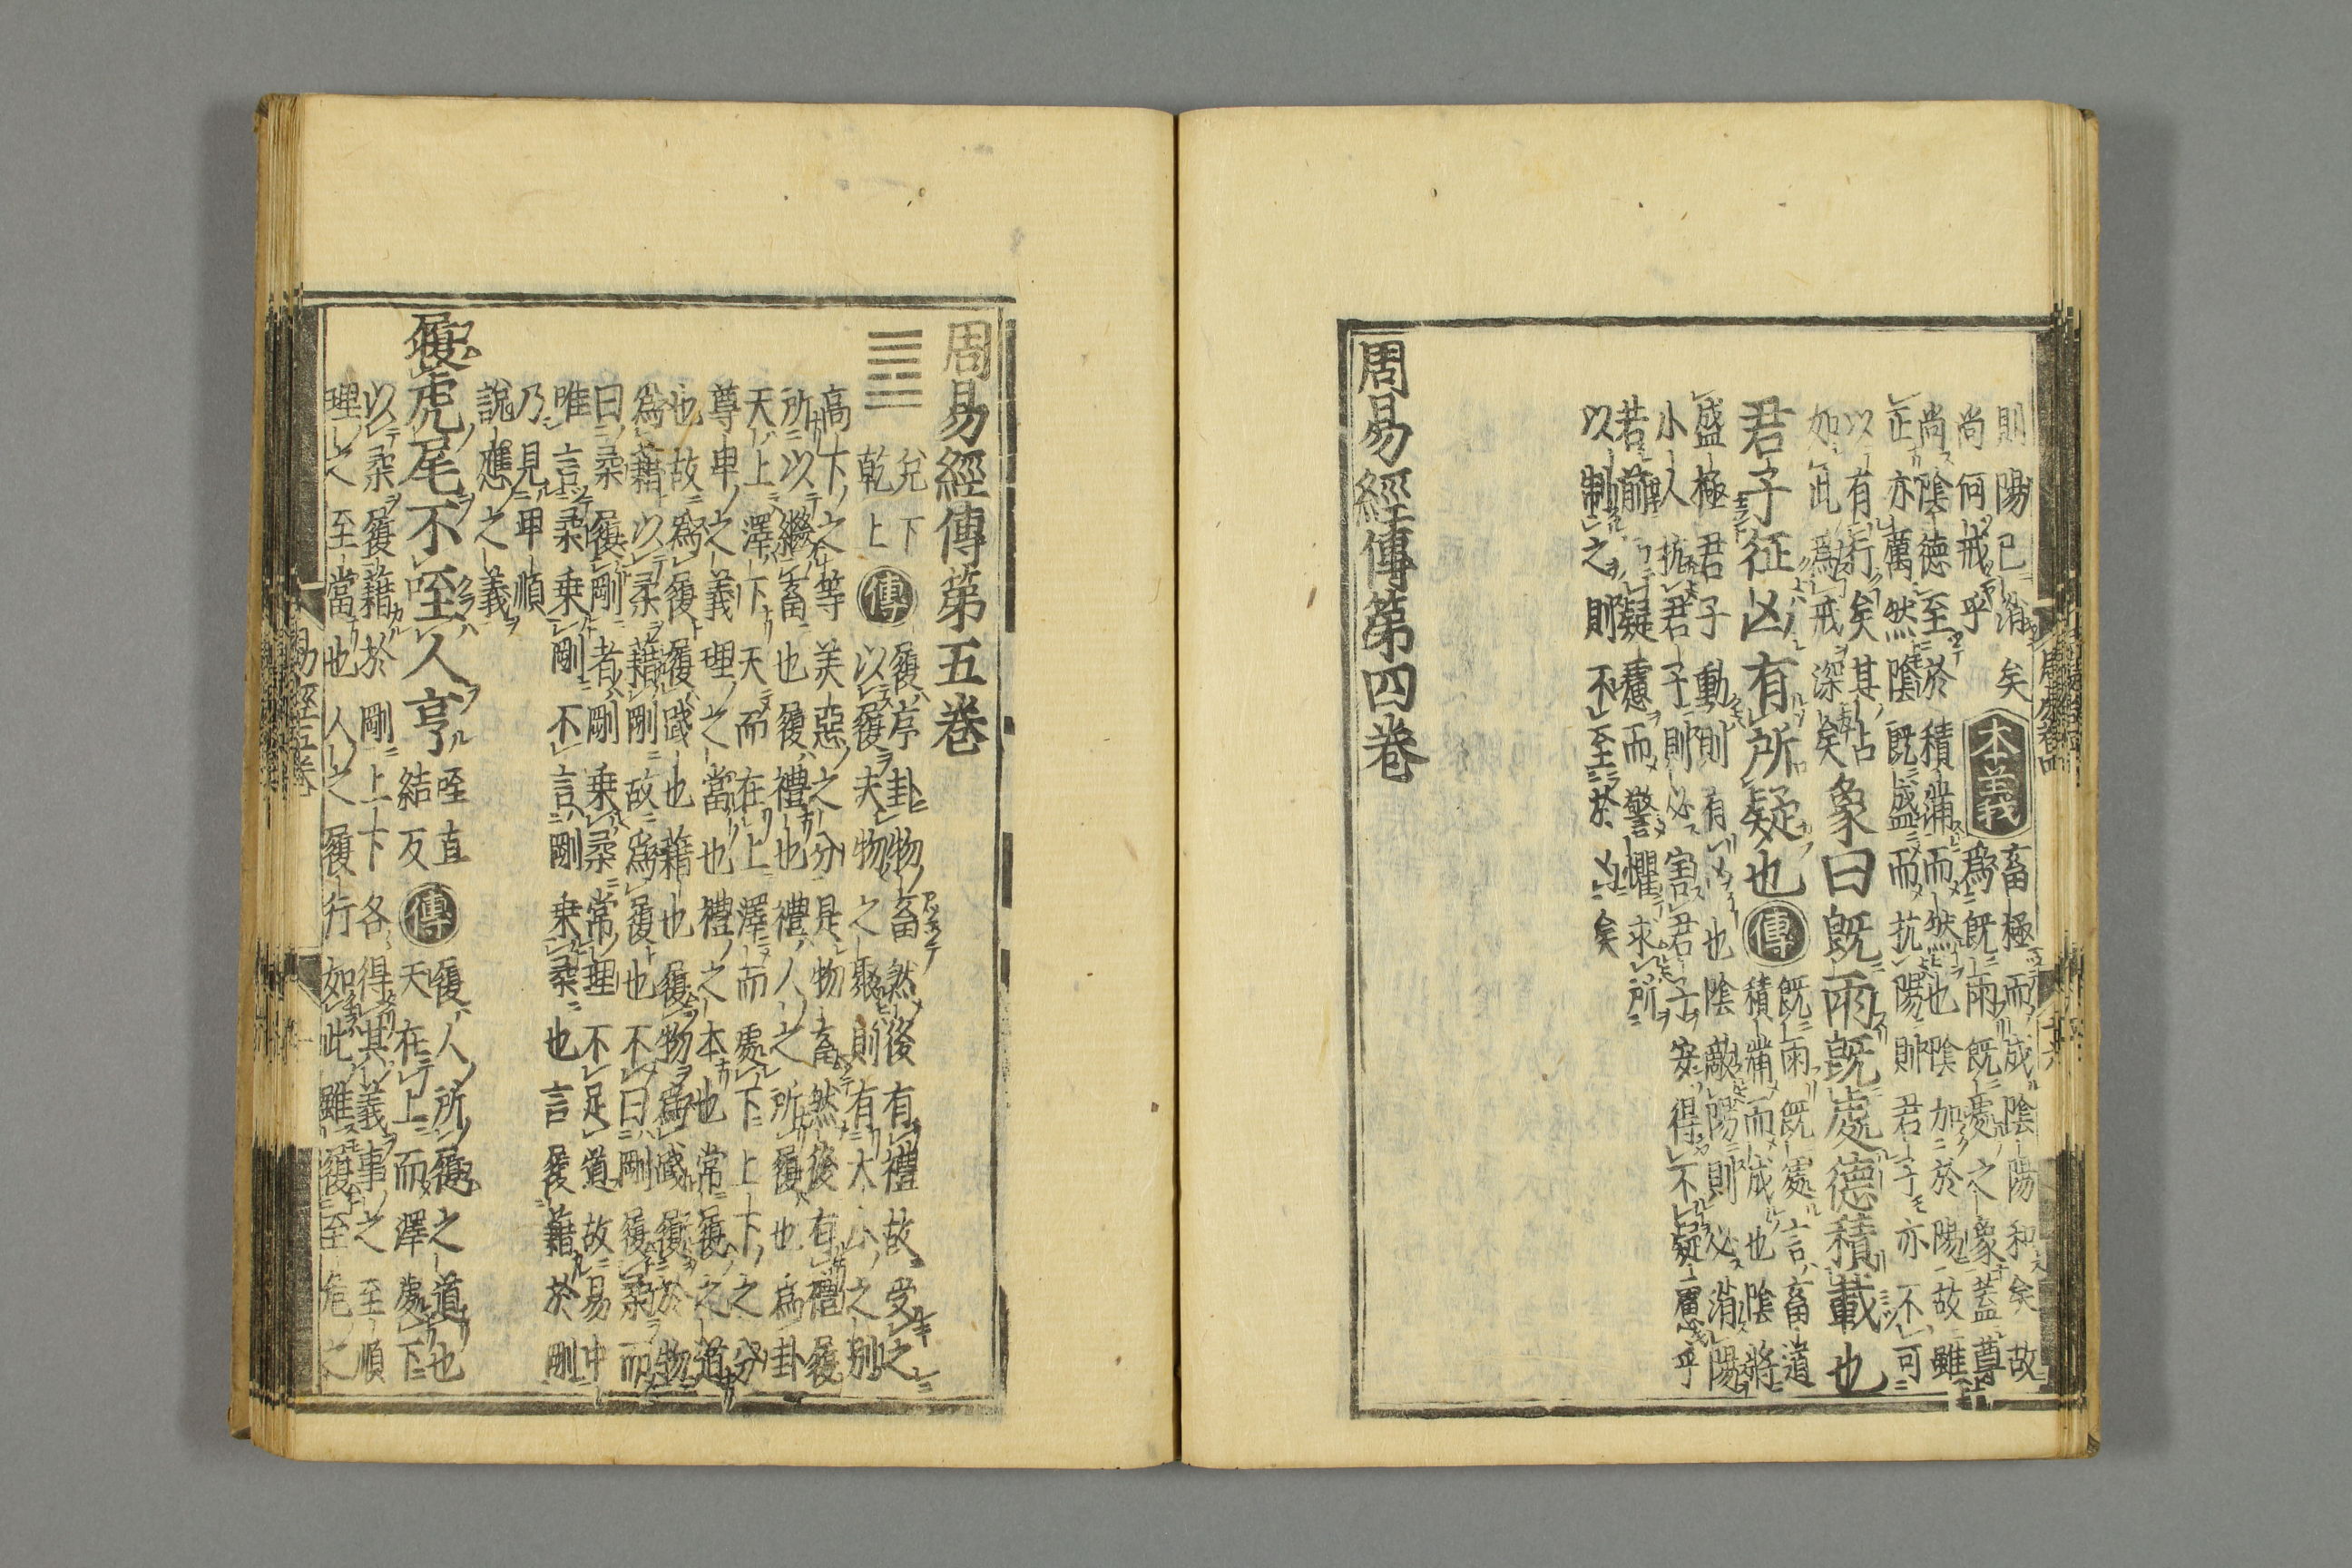 則陽已消矣 本義 畜極而成陰陽和矣故
尚何戒乎 爲既雨既處之象蓋尊
尚陰德至於積滿而然也陰加於陽故雖
正亦厲然陰既盛而抗陽則君子亦不可
以有行矣其占
如此爲戒深矣 象曰既雨既處德積載也
君子征凶有所疑也 傳 既雨既處言畜道
積滿而成也陰將
盛極君子動則有凶也陰敵陽則必消陽
小人抗君子則必害君子安得不疑慮乎
若前知疑慮而警懼求所
以制之則不至於凶矣
周易經傳第四卷
周易卷四
周易經傳第五卷
兌下
乾上 傳 履序卦物畜然後有禮故受之
以履夫物之聚則有大小之別
高下之等美惡之分是物畜然後有禮履
所以繼畜也履禮也禮人之所履也爲卦
天上澤下天而在上澤而處下上下之分
尊卑之義理之當也禮之本也常履之道
也故爲履履踐也藉也履物爲踐履於物
爲藉以柔藉剛故爲履也不曰剛履柔而
曰柔履剛者剛乗柔常理不足道故易中
唯言柔乗剛不言剛乗柔也言履藉於剛
乃見卑順
說應之義
履虎尾不咥人亨 咥直
結反 傳 履人所履之道也
天在上而澤處下
以柔履藉於剛上下各得其義事之至順
理之至當也人之履行如此雖履至危之
易經五卷